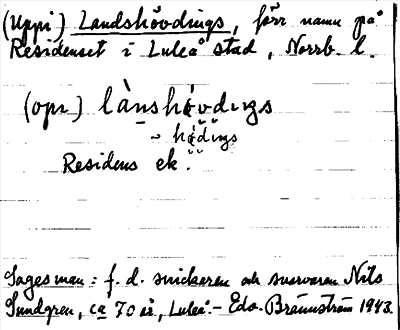 (Uppi) Landshövdings, förr namn på
Residenset i Luleå stad, Norrb. l.
(opi) lànshövdıgs
~ hö̤dıgs
Residens ek.
Sagesman: f. d. snickaren och svarvaren Nils
Sundgren, ca 70 år, Luleå. – Edv. Brännström 1943.